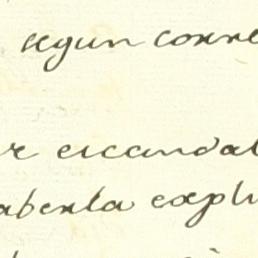 segun corre
r escandal
aberla expli